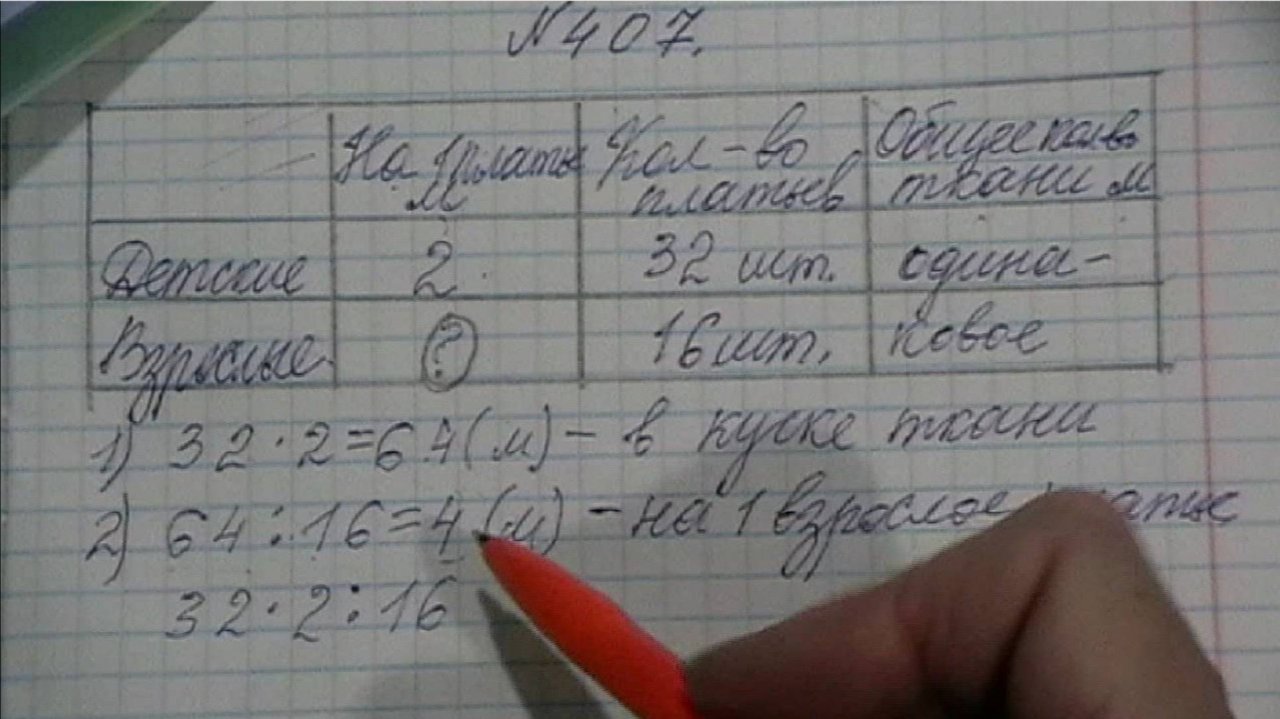 №407.
На 1 платье м
Кол-во платьев
Общее кол-во ткани м
Детские 2 32 шт. одина-
Взрослые ? 16 шт. ковое
1) 32·2=64(м) – в куске ткани
2) 64:16=4(м) – на 1 взрослое
32·2:16